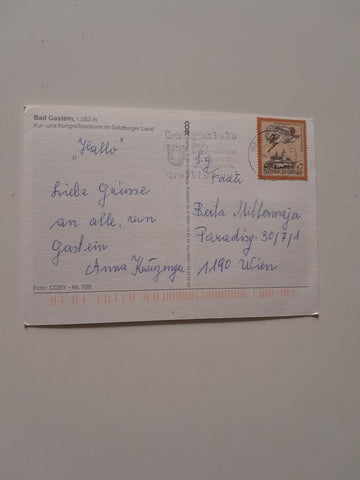 Bad Gastein, 1.083 m
Kur- und Kongreßzentrum im Salzburger Land
"Hallo"
Liebe Grüsse
an alle, von
Gastein
Anna
Foto: COSY - Nr. 708
COSY
bad gastein
S.g.
Berta
Paradisg. 30/7/1
1190 Wien